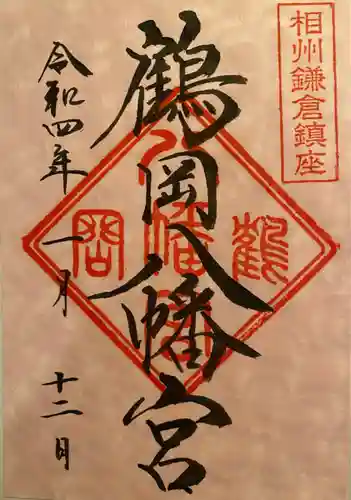 相州鎌倉鎮座
鶴岡八幡宮
令和四年一月十二日